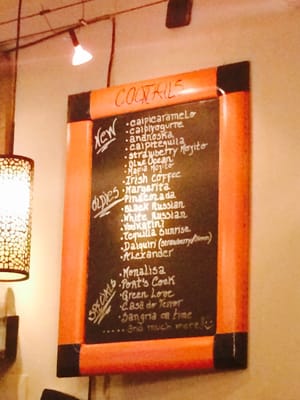 COCKTAILS
NEW
• caipicaramelo
• caipiyogurre
• ananoska
• caiptequila
• strawberry Mojito
• Blue Ocean
• Mafia Mojito
• Irish Coffee
Oldies
• Margarita
• Pinacolada
• Black Russian
• White Russian
• Tequilla Sunrise
• Daiquiri (strawberry/
• Alexander
Specials
• Monalisa
• Port's Cook
• Green Love
• Casa do Terror
• Sangria
..... and much more!